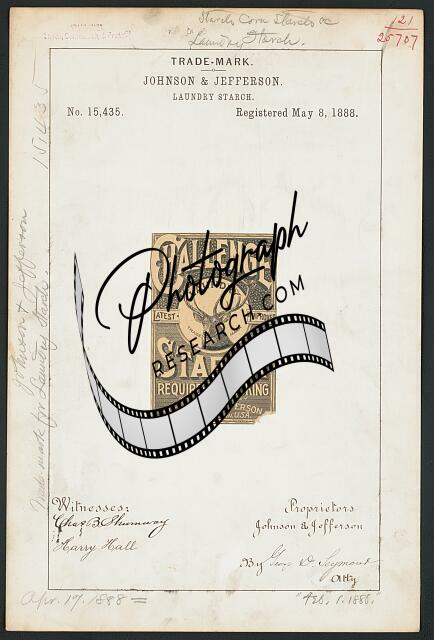 Starch Corn Starch &c
Laundry Starch.
121
25707
TRADE-MARK.
JOHNSON & JEFFERSON.
LAUNDRY STARCH.
No. 15,435.
Registered May 8, 1888.
15,435
Johnson & Jefferson
Trade mark for Laundry Starch.
LATEST
STAR
REQUIRE KING
FERSON
U.S.A.
Photograph
RESEARCH.COM
Witnesses:
Chas. B. Shumway
Harry Hall
Proprietors
Johnson & Jefferson
By Geo. D. Seymour
Atty
Apr. 17. 1888